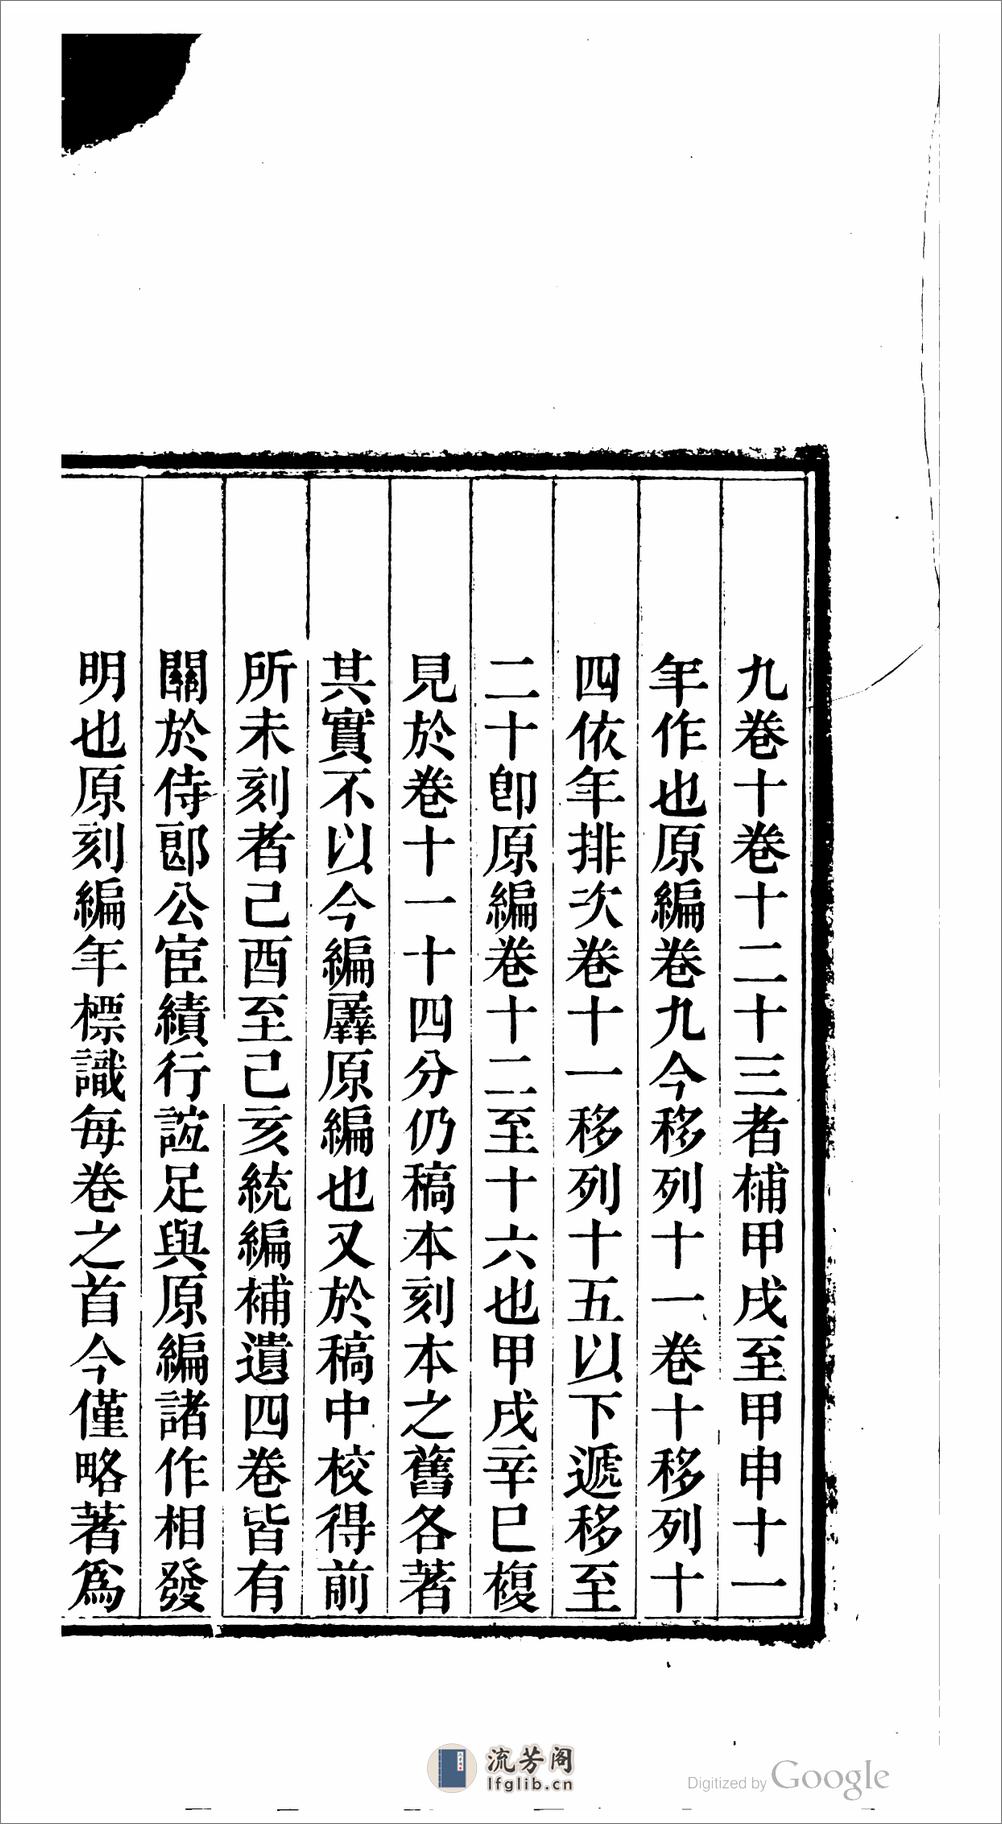 九卷十卷十二十三者補甲戌至甲申十一
年作也原編卷九今移列十一卷十移列十
四依年排次卷十一移列十五以下遞移至
二十卽原編卷十二至十六也甲戌辛巳複
見於卷十一十四分仍稿本刻本之舊各著
其實不以今編羼原編也又於稿中校得前
所未刻者己酉至己亥統編補遺四卷皆有
關於侍郎公宦績行誼足與原編諸作相發
明也原刻編年標識每卷之首今僅略著爲
流芳阁
lfglib.cn
Digitized by Google